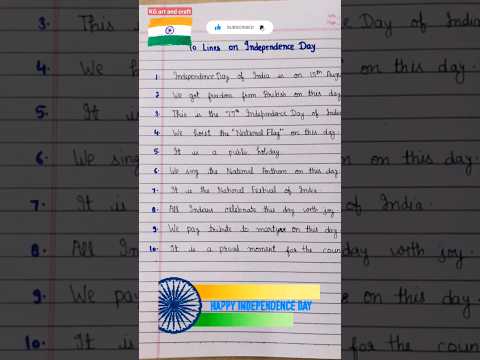 KG art and craft
SUBSCRIBED
10 Lines on Independence Day
1. Independence Day of India is on 15th Augu
2. We get freedom from British on this day
3. This is the 77th Independence Day of India
4. We hoist the "National Flag" on this day.
5. It is a public holiday.
6. We sing the National Anthem on this day.
7. It is the National Festival of India.
8. All Indians celebrate this day with joy.
9. We pay tribute to martyrs on this day
10. It is a proud moment for the coun
HAPPY INDEPENDENCE DAY
3. This is
4. We ho
5. It is
6. We sing
7. It is
8. All In
9. We pay
10. It is
Day of India
on this day.
on this day.
of India.
day with joy.
on this day
for the coun